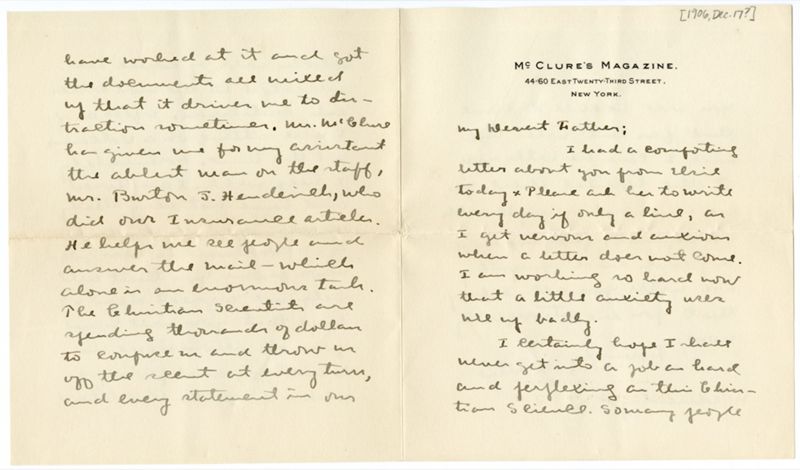 [1906, Dec. 17?]
McCLURE'S MAGAZINE.
44-60 EAST TWENTY-THIRD STREET.
NEW YORK.
My Dearest Father;
I had a comforting
letter about you from Elsie
today x Please ask her to write
every day if only a line, as
I get nervous and anxious
when a letter does not come.
I am working so hard now
that a little anxiety uses
me up badly.
I certainly hope I shall
never get into a job as hard
and perplexing as this Chris-
tian Science. So many people
have worked at it and got
the documents all mixed
up that it drives me to dis-
traction sometimes. Mr. McClure
has given me for my assistant
the ablest man on the staff,
Mr. Burton J. Hendrick, who
did our Insurance articles.
He helps me see people and
answer the mail—which
alone is an enormous task.
The Christian Scientists are
spending thousands of dollars
to confuse us and throw us
off the scent at every turn,
and every statement in our